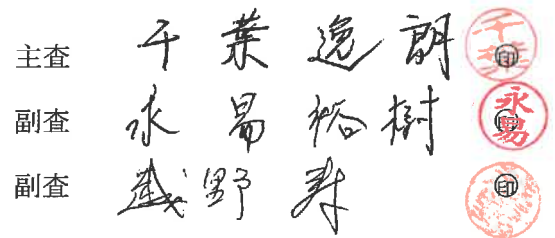 主査 千葉逸朗 千葉 印
副査 永易裕樹 永易 印
副査 野 寿 印